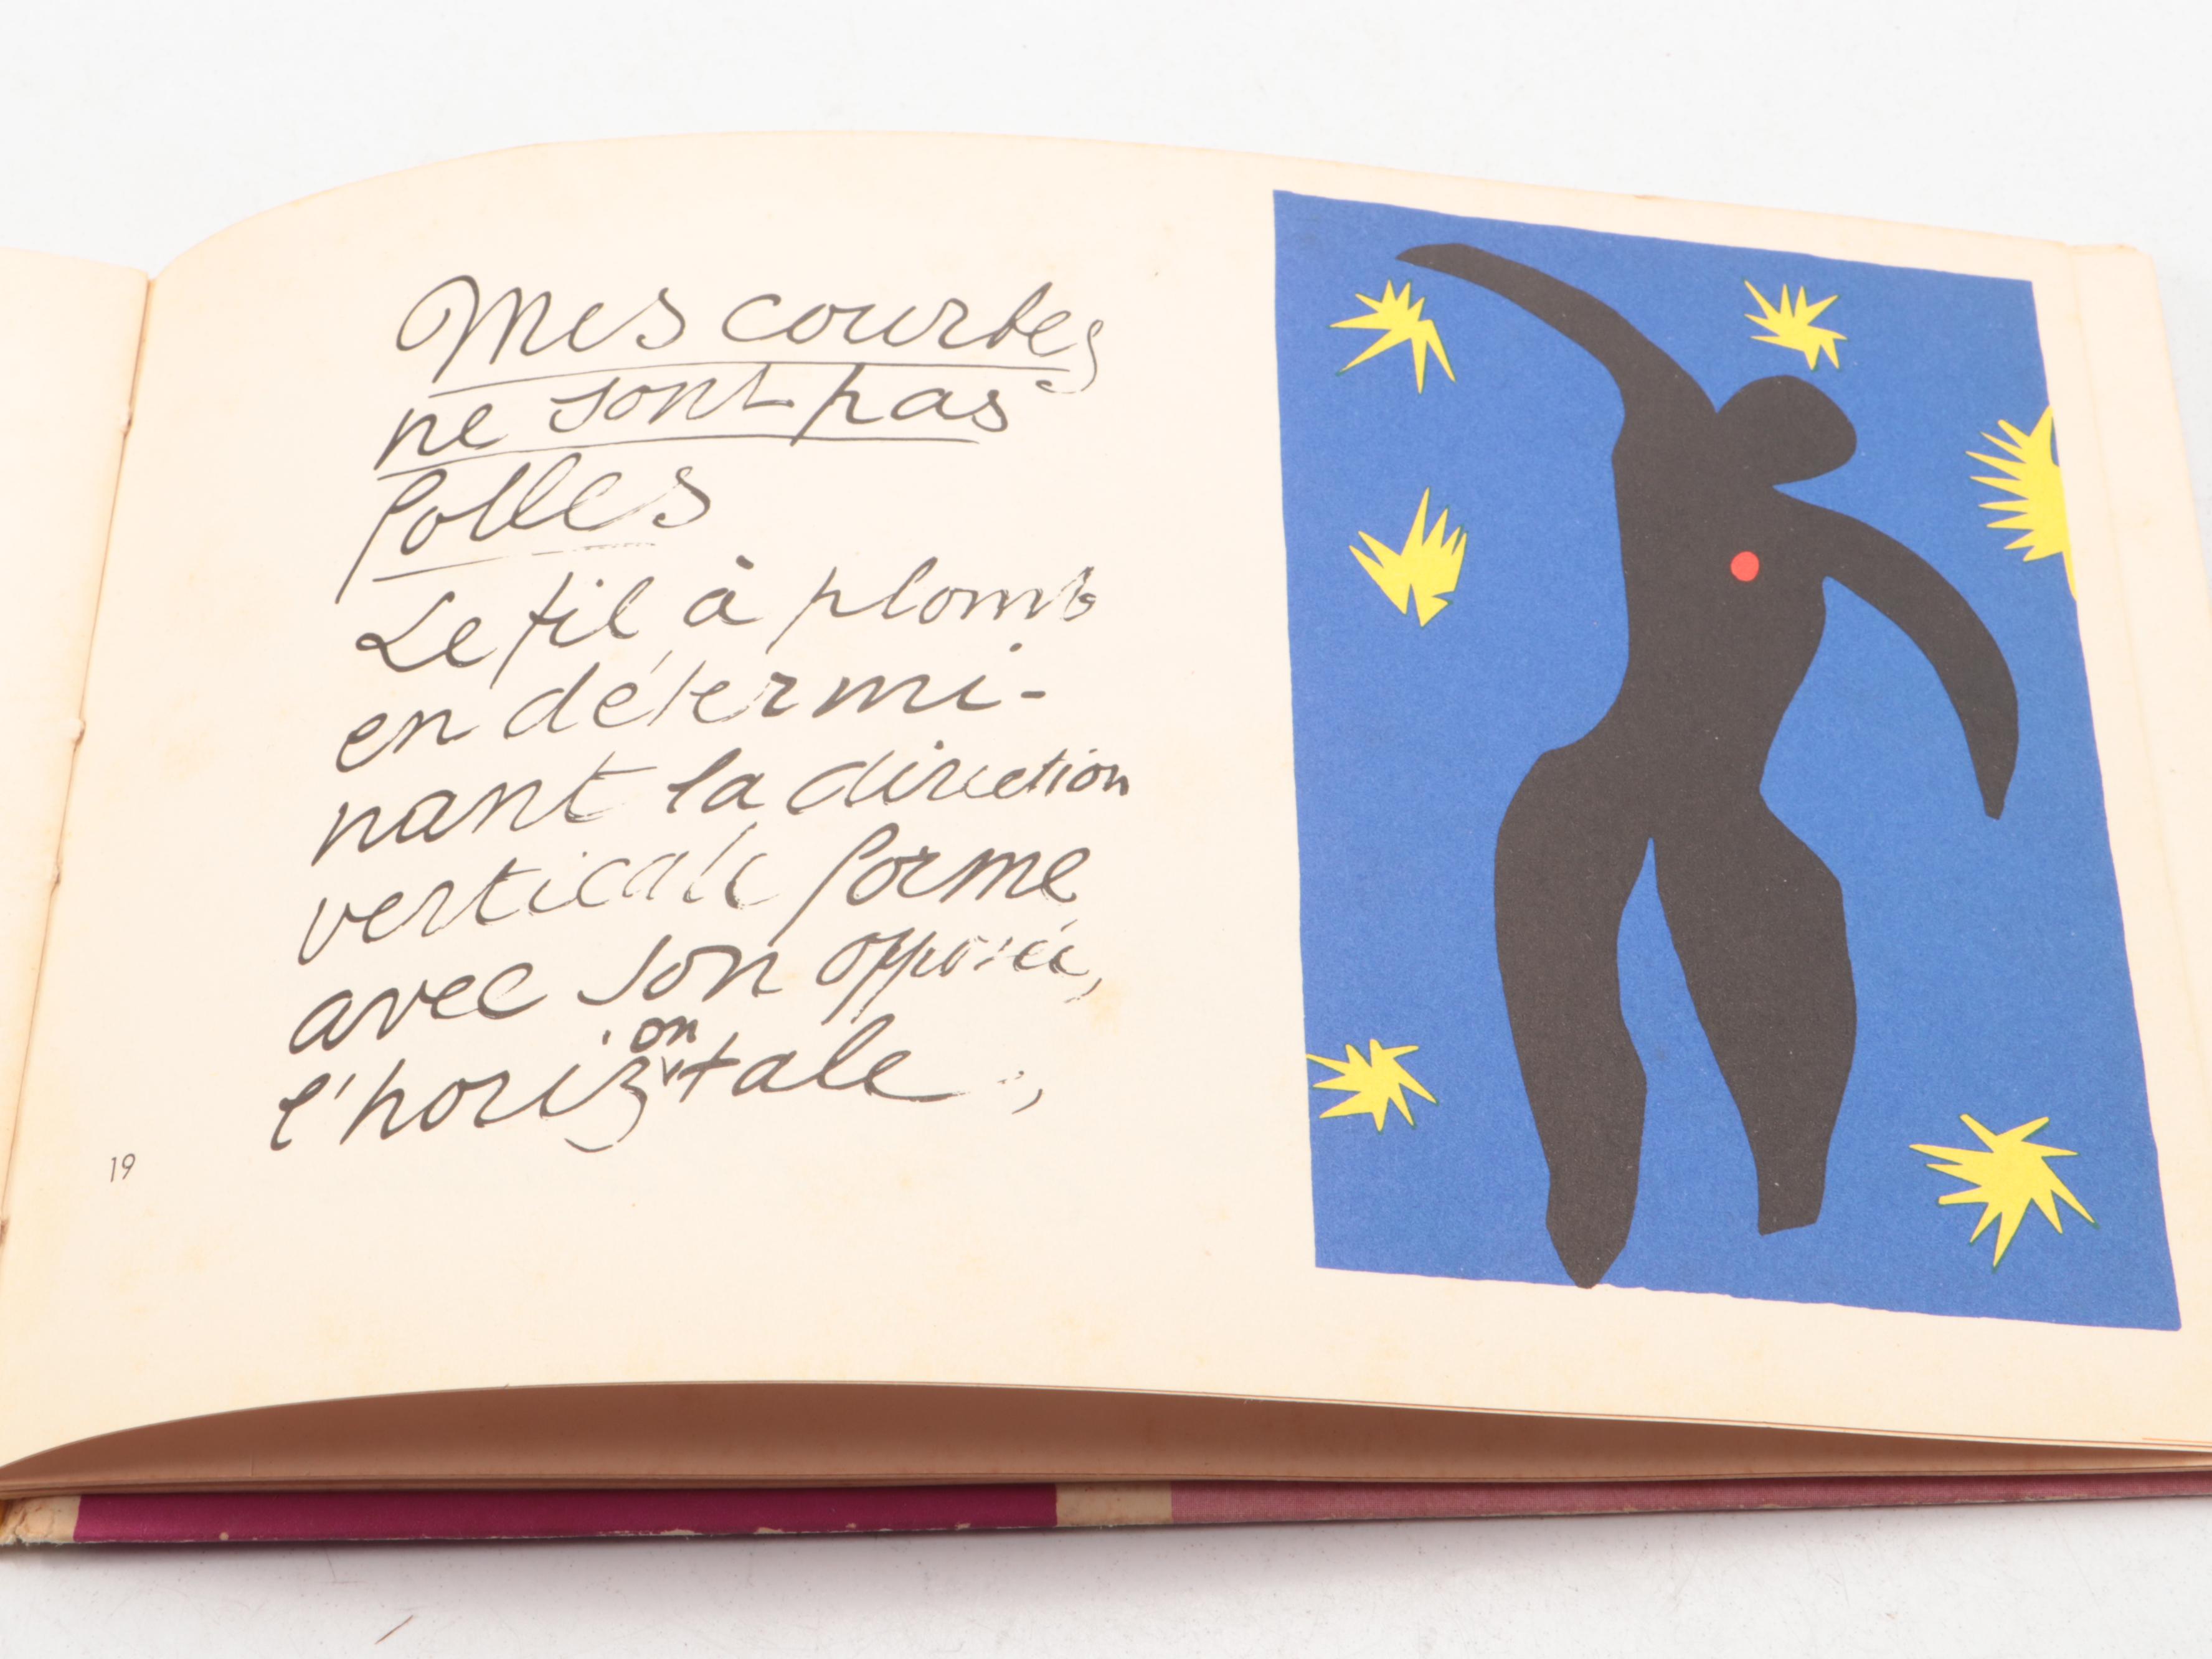 Mes courbes
ne sont pas
folles
Le fil à plomb
en détermi-
nant la direction
verticale forme
avec son opposée,
l'horizontale,
19